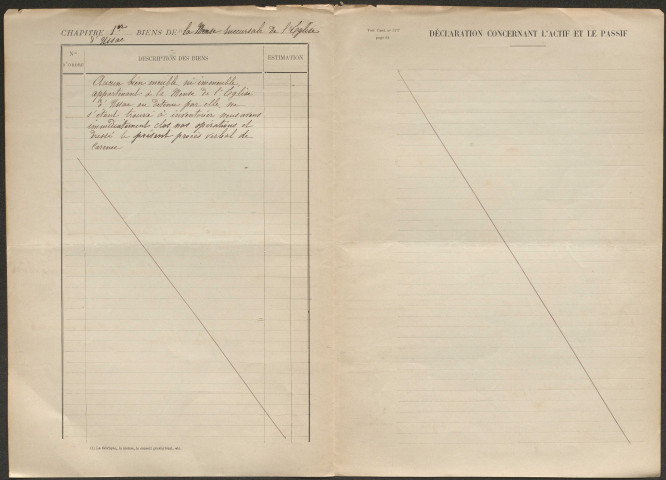 CHAPITRE 1er BIENS DE la Mense succursale de l'Eglise
d'Ussac
Nos
D'ORDRE
DESCRIPTION DES BIENS
ESTIMATION
Aucun bien meuble ni immeuble
appartenant à la Mense de l'Eglise
d'Ussac ou détenu par elle ne
s'étant trouvé à inventorier nous avons
immédiatement clos nos opérations et
dressé le présent procès verbal de
carence
(1) La fabrique, la mense, le conseil presbytéral, etc.
page
DÉCLARATION CONCERNANT L'ACTIF ET LE PASSIF